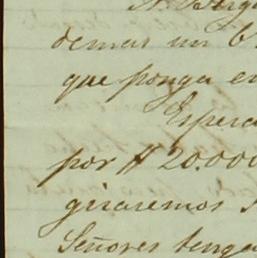 demas un
que ponga en
por $ 20.000
giraremos
Señores tenga